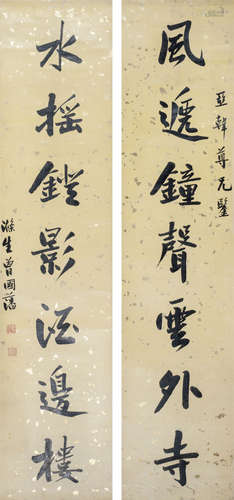 亞韓尊兄鑒
風遞鐘聲雲外寺
水搖鐙影酒邊樓
滌生曾國藩